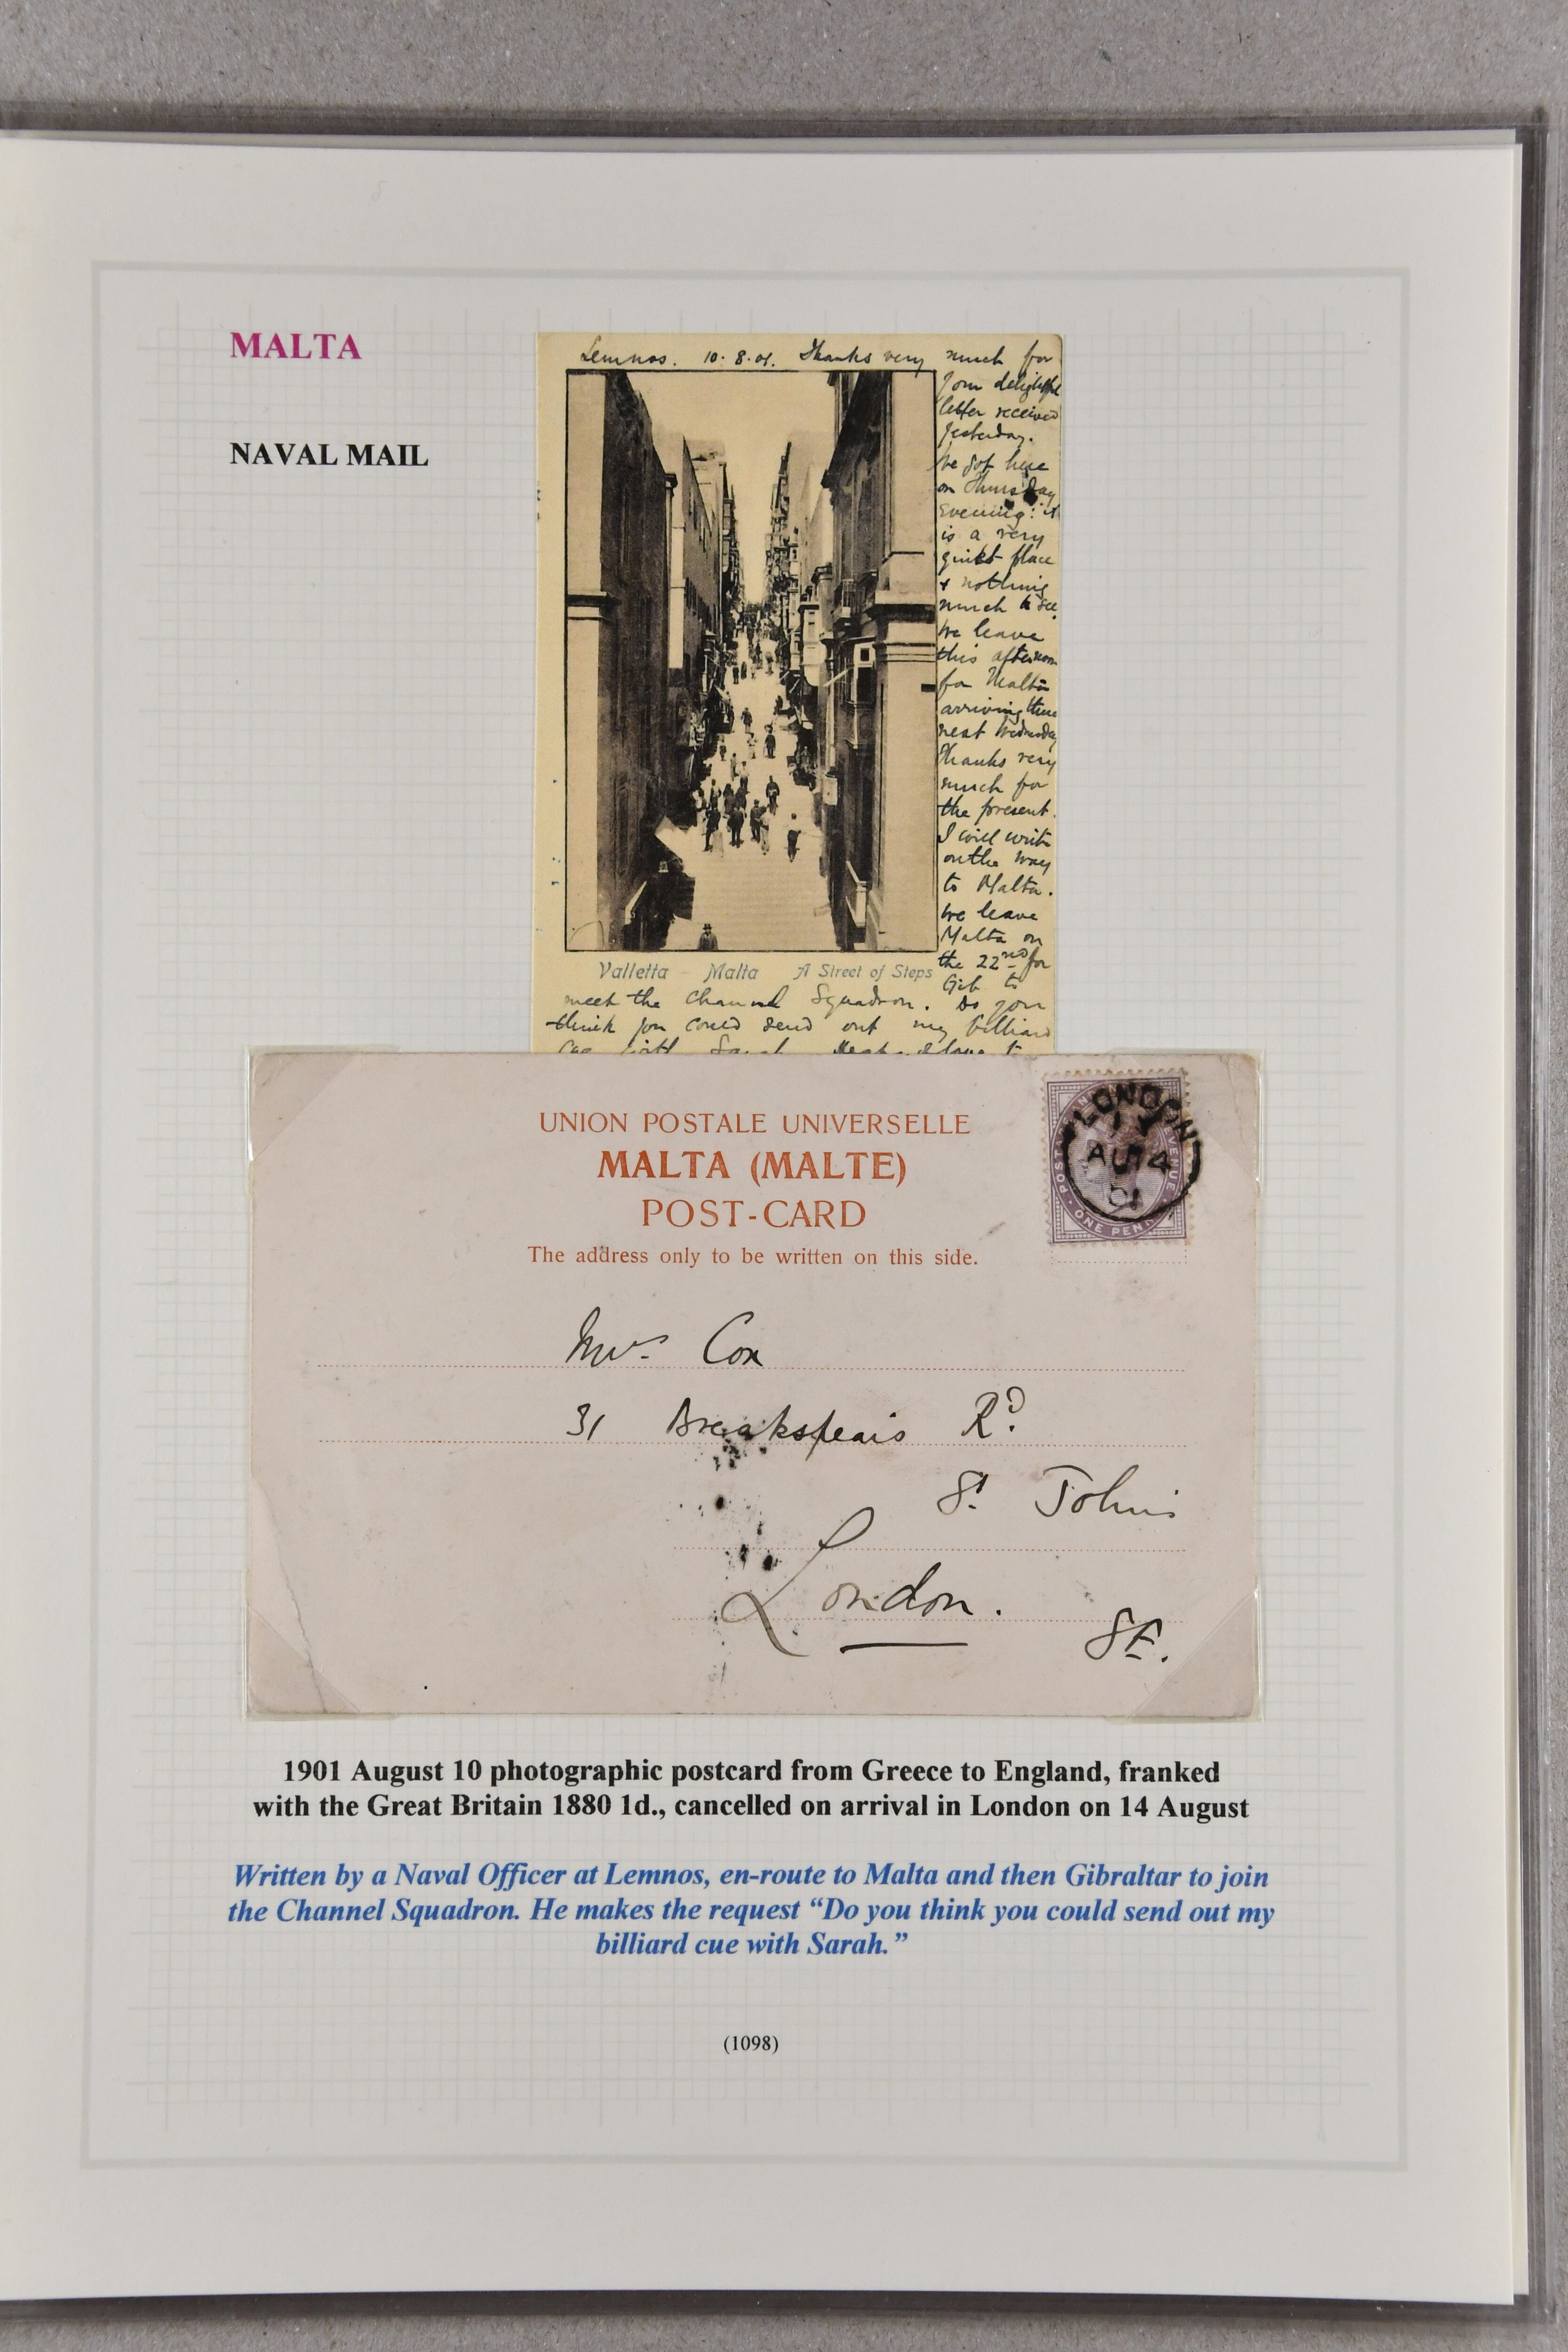 MALTA
NAVAL MAIL
Lemnos. 10.8.01. Thanks very much for
your delightful
letter received
yesterday.
We got here
on Thursday
evening: it
is a very
quiet place
& nothing
much to see.
We leave
this afternoon
for Malta
arriving there
next Wednesday
Thanks very
much for
the present.
I will write
on the way
to Malta.
We leave
Malta on
the 22nd for
Gib to
Valletta - Malta A Street of Steps
meet the Channel Squadron. Do you
think you could send out my billiard
cue with Sarah. love to
UNION POSTALE UNIVERSELLE
MALTA (MALTE)
POST-CARD
The address only to be written on this side.
POSTAGE REVENUE
ONE PENNY
LONDON
AU 14
01
Mrs. Cox
31 Breakspears Rd.
St. Johns
London.
SE.
1901 August 10 photographic postcard from Greece to England, franked
with the Great Britain 1880 1d., cancelled on arrival in London on 14 August
Written by a Naval Officer at Lemnos, en-route to Malta and then Gibraltar to join
the Channel Squadron. He makes the request “Do you think you could send out my
billiard cue with Sarah.”
(1098)